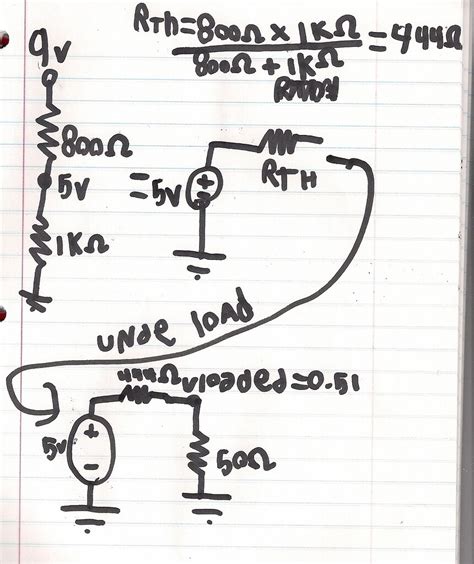 RTH=800Ω x 1KΩ
800Ω + 1KΩ
=444Ω
9v
800Ω
5v
1KΩ
=
5v
+
-
RTH
unde load
444Ω
vloaded=0.51
5v
+
-
50Ω